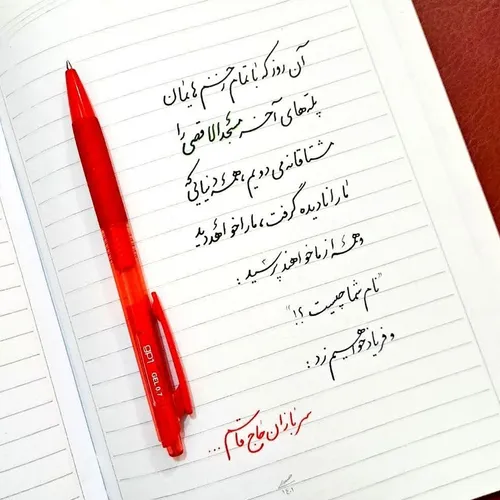 آن روز که با تمام زخم هایمان
پله‌های آخر مسجدالاقصی را
مشتاقانه می دویم، همهٔ دنیایی که
ما را نادیده گرفت، ما را خواهد دید
و همه از ما خواهند پرسید:
"نام شما چیست؟!"
و فریاد خواهیم زد:
سربازان حاج قاسم...
GEL 0.7